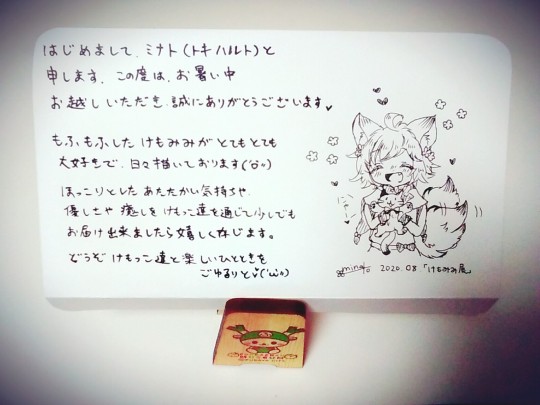 はじめまして、ミナト(トキハルト)と
申します。この度は、お暑い中
お越しいただき、誠にありがとうございます♥
もふもふした けもみみが とてもとても
大好きで、日々描いております
ほっこりとした あたたかい気持ちや、
優しさや 癒しを けもっこ達を通じて少しでも
お届け出来ましたら嬉しく存じます。
どうぞ けもっこ達と楽しいひとときを
ごゆるりと
minato 2020.08「けもみみ展」